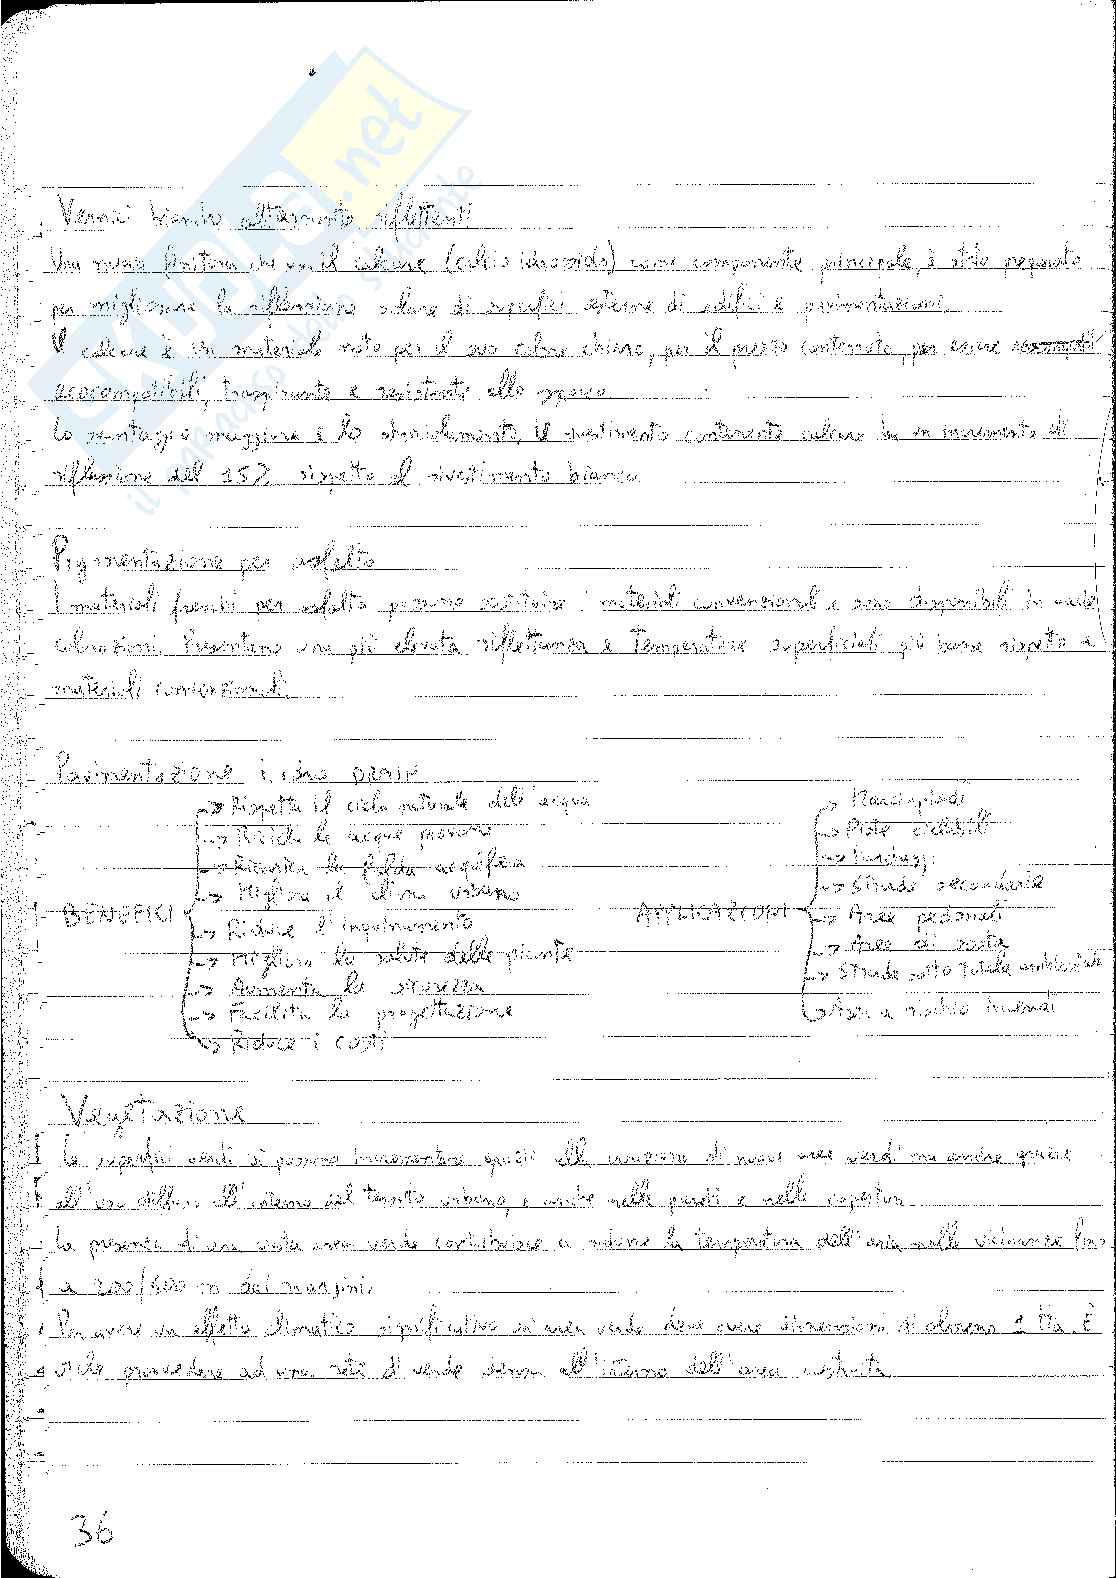 Vernici bianche altamente riflettenti
Una nuova finitura che usa il calcare (calcio idrossido) come componente principale, è stata preparata
per migliorare la riflessione solare di superfici esterne di edifici e pavimentazioni.
Il calcare è un materiale noto per il suo colore chiaro, per il prezzo contenuto, per essere
ecocompatibili, traspirante e resistente allo sporco
Lo svantaggio maggiore è lo sfarinamento, il rivestimento contenente calcare ha un incremento di
riflessione del 15% rispetto al rivestimento bianco
Pigmentazione per asfalto
I materiali freschi per asfalto possono sostituire i materiali convenzionali e sono disponibili in varie
colorazioni. Presentano una più elevata riflettanza e temperature superficiali più basse rispetto a
materiali convenzionali.
Pavimentazione i.idro DRAIN
BENEFICI
→ Rispetta il ciclo naturale dell'acqua
→ Ricicla le acque piovane
→ Ricarica la falda acquifera
→ Migliora il clima urbano
→ Riduce l'inquinamento
→ Migliora la salute delle piante
→ Aumenta la sicurezza
→ Facilita la progettazione
→ Riduce i costi
APPLICAZIONI
→ Marciapiedi
→ Piste ciclabili
→ Parcheggi
→ Strade secondarie
→ Aree pedonali
→ Aree di sosta
→ Strade sotto tutela ambientale
→ Aree a rischio
Vegetazione
Le superfici verdi si possono incrementare grazie alla creazione di nuove aree verdi ma anche grazie
all'uso diffuso all'interno del tessuto urbano, e anche nelle pareti e nelle coperture
La presenza di una vasta area verde contribuisce a ridurre la temperatura dell'aria nelle vicinanze fino
a 200/600 m dai margini.
Per avere un effetto climatico significativo un'area verde deve avere dimensioni di almeno 1 Ha. È
utile provvedere ad una rete di verde denso all'interno dell'area costruita
36
SKUOLA.net